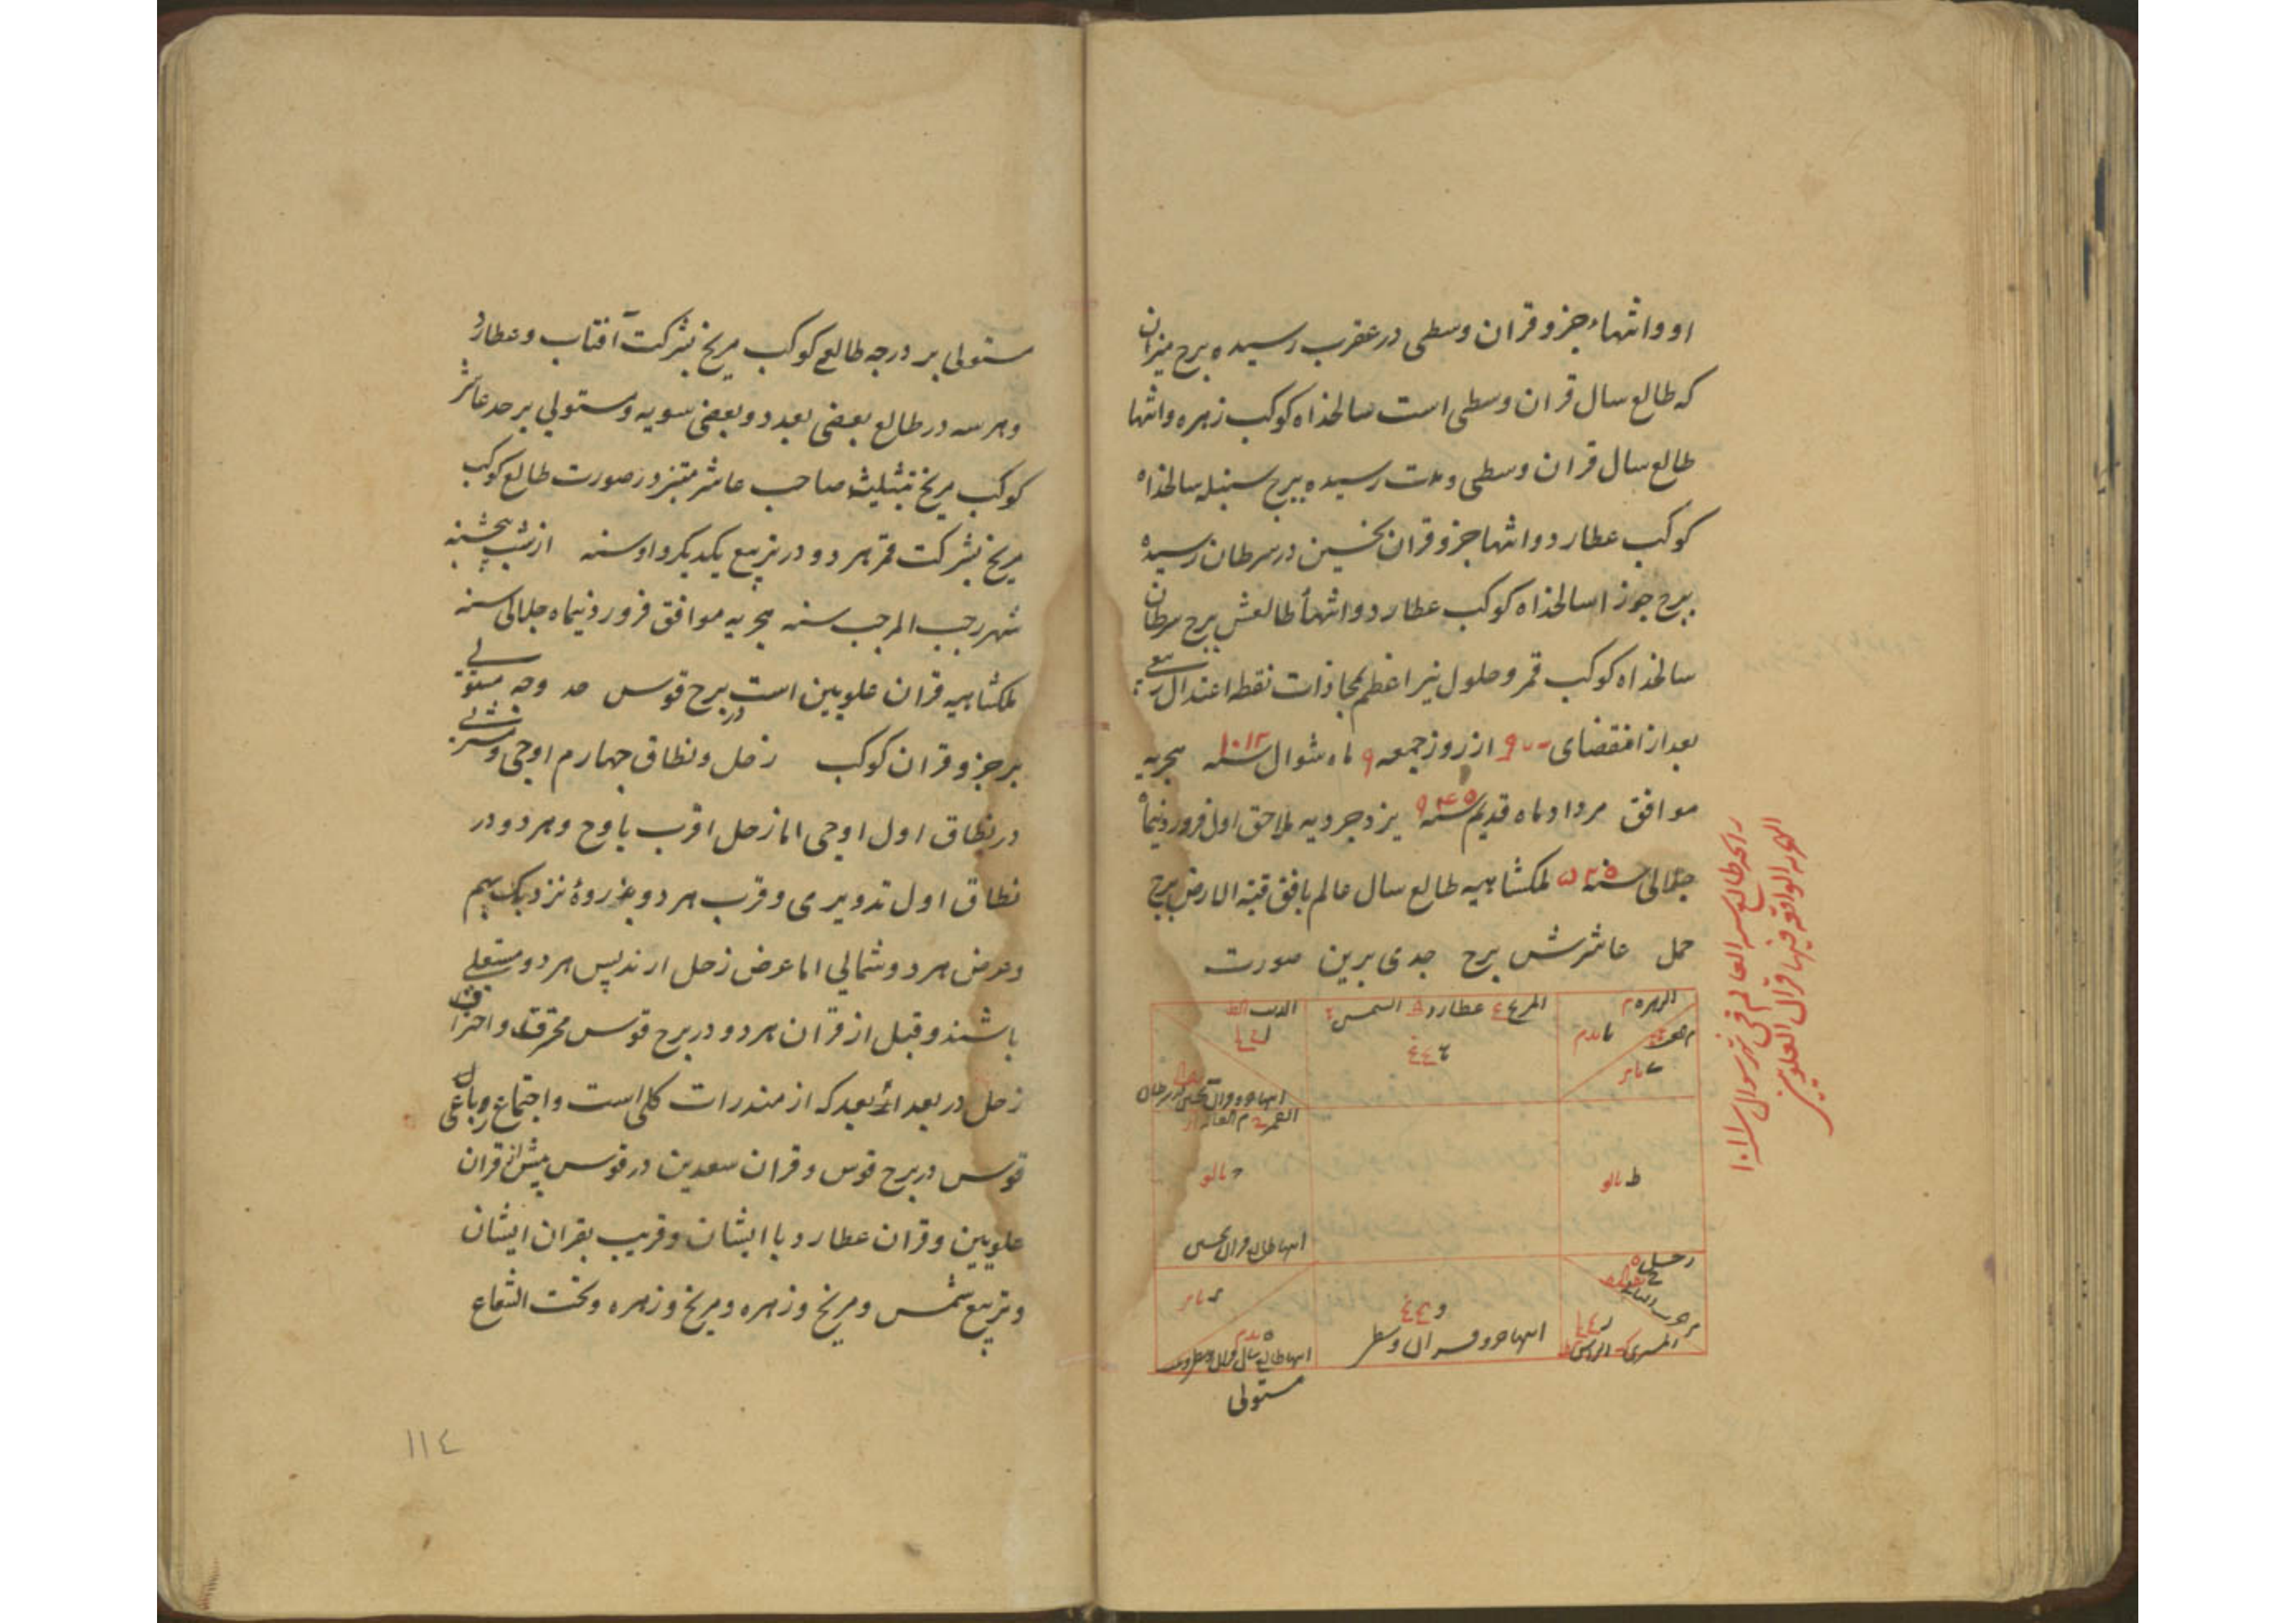 او و انتهاء جزو قران وسطی در عقرب رسیده برج میزان
که طالع سال قران وسطی است سالخذاه کوکب زهره و انتها
طالع سال قران وسطی و مدت رسیده ببرج سنبله سالخذاه
کوکب عطارد و انتها جزو قران نحسین در سرطان رسیده
ببرج جوزا سالخذاه کوکب عطارد و انتهأ طالعش ببرج سرطان
سالخذاه کوکب قمر و حلول نیر اعظم بمحاذات نقطه اعتدال ربیعی
بعد از انقضای از روز جمعه ۹ ماه شوال سنه ۱۰۱۲ هجریه
موافق مرداد ماه قدیم سنه یزدجردیه ملاحق اول فروردینماه
جلالی سنه ۵۲۵ ملکشاهیه طالع سال عالم بافق قبة الارض برج
حمل عاشرش برج جدی برین صورت
زایجه طالع سنه العالم فی شهر شوال سنه ۱۰۱۲
الهجریه الواقعه فیها قران العلویین
الزهره
المریخ عطارد الشمس
الذنب
القمر
انتها طالع قران نحسین
زحل
المشتری الراس
انتها جزو قران وسطی
انتها طالع سال قران وسطی و مدت
مستولی
مستولی بر درجه طالع کوکب مریخ بشرکت آفتاب و عطارد
و هر سه در طالع بعضی بعدد و بعضی بسویه و مستولی بر حد عاشر
کوکب مریخ بتثلیث صاحب عاشر متبز در صورت طالع کوکب
مریخ بشرکت قمر هر دو در تربیع یکدیگر و اوسنه از شب پنجشنبه
شهر رجب المرجب سنه هجریه موافق فروردینماه جلالی سنه
ملکشاهیه قران علویین است در برج قوس حد وجه مستولی
بر جزو قران کوکب زحل و نطاق چهارم اوجی و مشتری
در نطاق اول اوجی اما زحل اقرب باوج و هر دو در
نطاق اول تدویری و قرب هر دو بذروهٔ نزدیک بهم
و عرض هر دو شمالی اما عرض زحل ازید پس هر دو مستعلی
باشند و قبل از قران هر دو در برج قوس محترقند و احتراق
زحل در بعد ابعد که از منذرات کلی است و اجتماع وبالی
قوس در برج قوس و قران سعدین در قوس پیش از قران
علویین و قران عطارد با ایشان و قریب بقران ایشان
و تربیع شمس و مریخ و زهره و مریخ و زهره و تحت الشعاع
١١٤